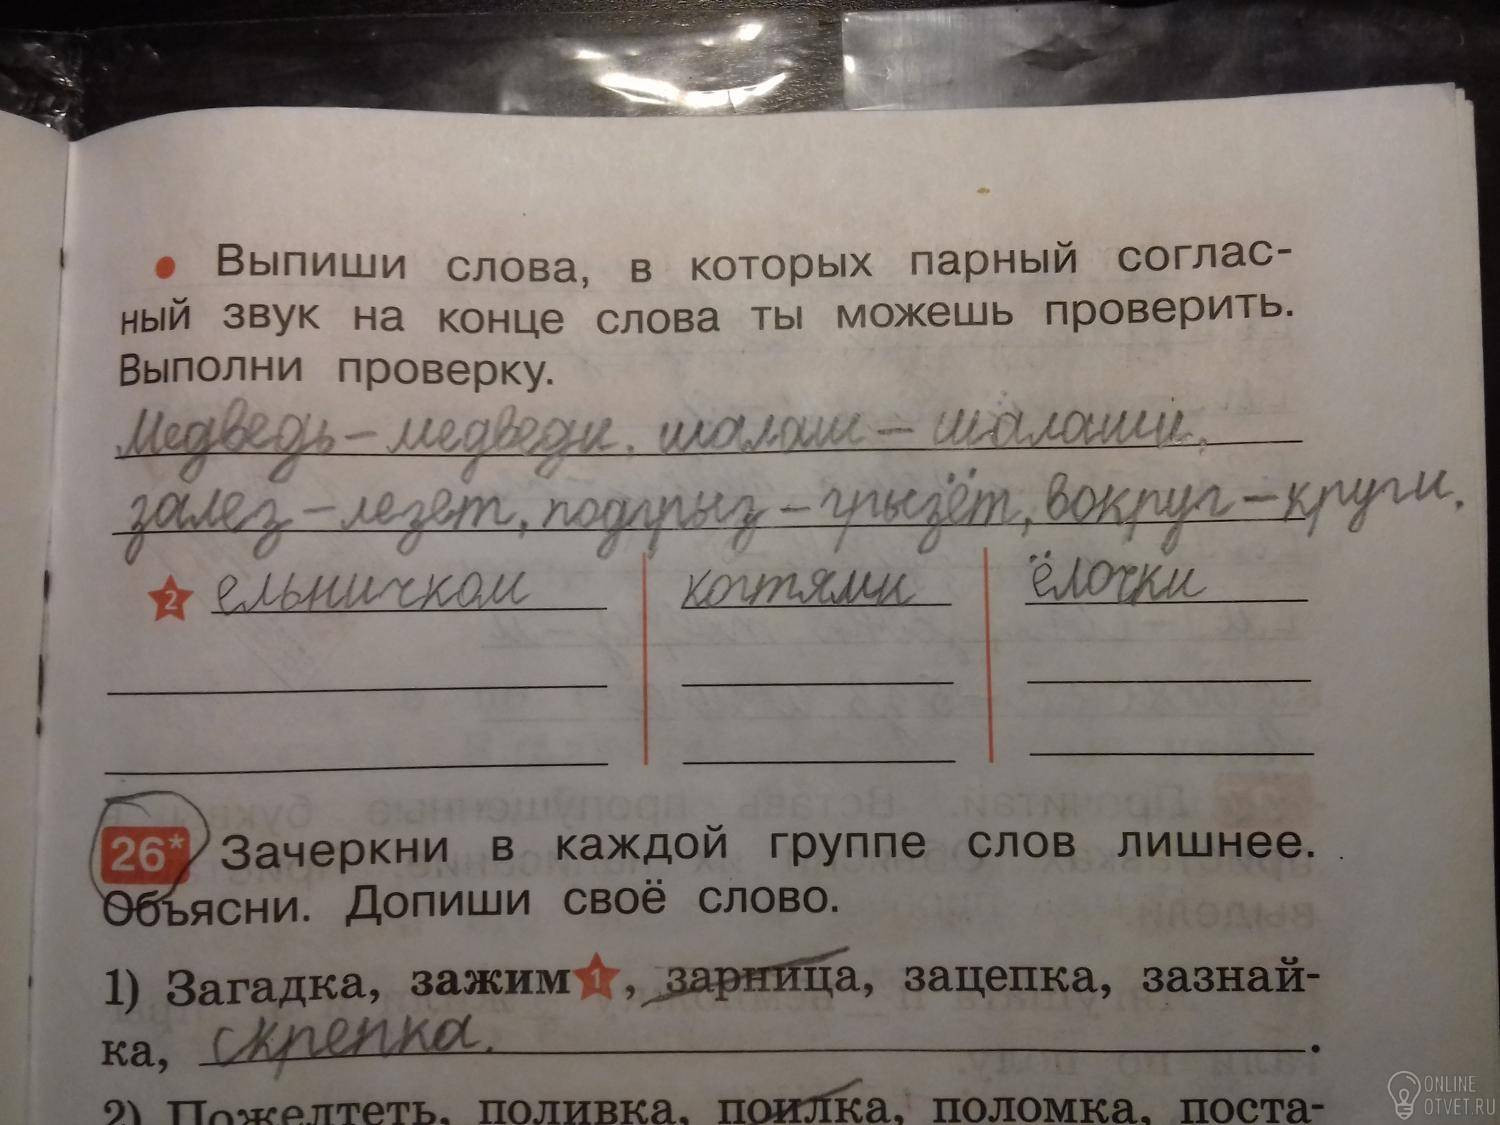 • Выпиши слова, в которых парный соглас-
ный звук на конце слова ты можешь проверить.
Выполни проверку.
Медведь – медведи. шалаш – шалаши.
залез – лезет, подгрыз – грызёт, вокруг – круги.
2 ельничком когтями ёлочки
26* Зачеркни в каждой группе слов лишнее.
Объясни. Допиши своё слово.
1) Загадка, зажим 1, зарница, зацепка, зазнай-
ка, скрепка.
2) Пожелтеть, поливка, поилка, поломка, поста-
ONLINE
OTVET.RU